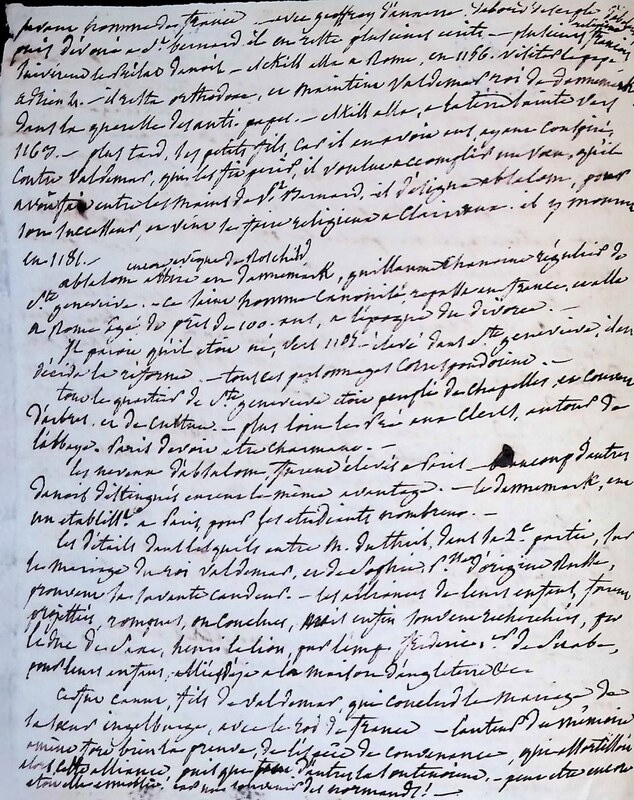 savans hommes de france — avec geoffroy d'auxerre, d'abord disciple d'abélard
puis dévoué a St bernard il en reste plusieurs écrits — plusieurs français religieux
suivirent le prélat danois — eskill alla a Rome, en 1156. visiter le pape
adrien 4. — il resta orthodoxe, et maintint Valdemar roi de dannemark
dans la querelle des anti-papes. — eskill alla, a la terre sainte vers
1163. — plus tard, ses petits fils, car il en avoit eus, ayant conspiré,
contre Valdemar, qui les fit périr, il voulut accomplir un vœu, qu'il
avoit fait entre les mains de St Bernard, il désigna absalom, pour
son successeur, et vint se faire religieux a Clairvaux. il y mourut
en 1181.
absalom encore évêque de Roschild attira en dannemark, guillaume chanoine régulier de
Ste genevieve. — ce saint homme canonisé, repassa en france, et alla
a Rome âgé, de près de 100 ans, a l'époque du divorce. —
Il paroit qu'il étoit né, vers 1105 — élevé dans Ste genevieve, il en
décida la réforme. — tous ces personnages correspondoient. —
tout le quartier de Ste genevieve étoit peuplé de chapelles, et couvert
d'arbres et de culture. — plus loin les Pré aux Clercs, autour de
l'abbaye. Paris devoit etre charmant. —
les neveux d'absalom, furent élevés a Paris — beaucoup d'autres
danois distingués eurent le même avantage. — le dannemark, eut
un établisst. a Paris, pour ses etudiants nombreux. —
les détails dans lesquels entre M. dutheil, dans la 2e. partie, sur
le mariage du roi Valdemar, et de Sophie Psse d'origine Russe,
prouvent sa savante candeur. — les alliances de leurs enfans, furent
projettés, rompues, ou conclues, mais enfin souvent recherchées, par
le duc de Saxe, henri le lion, par l'emp. frédéric, d. de Souabe,
pour leurs enfans, alliés déja a la maison d'angleterre &c
Ce fut canut, fils de Valdemar, qui conclut le mariage de
sa sœur ingelburge, avec le roi de france — l'auteur du mémoire
a même fort bien la preuve, de l'espèce de convenance, qui assortissoit
alors cette alliance, puisque tant d'autres la soutenoient. — peut etre encore
étoit elle ennoblie, par nos souvenirs des normands! —